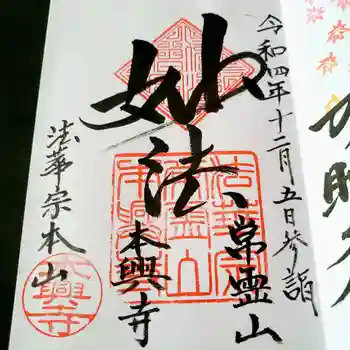 令和四年十二月五日参詣
常霊山
妙法
本興寺
法華宗本山
本興寺